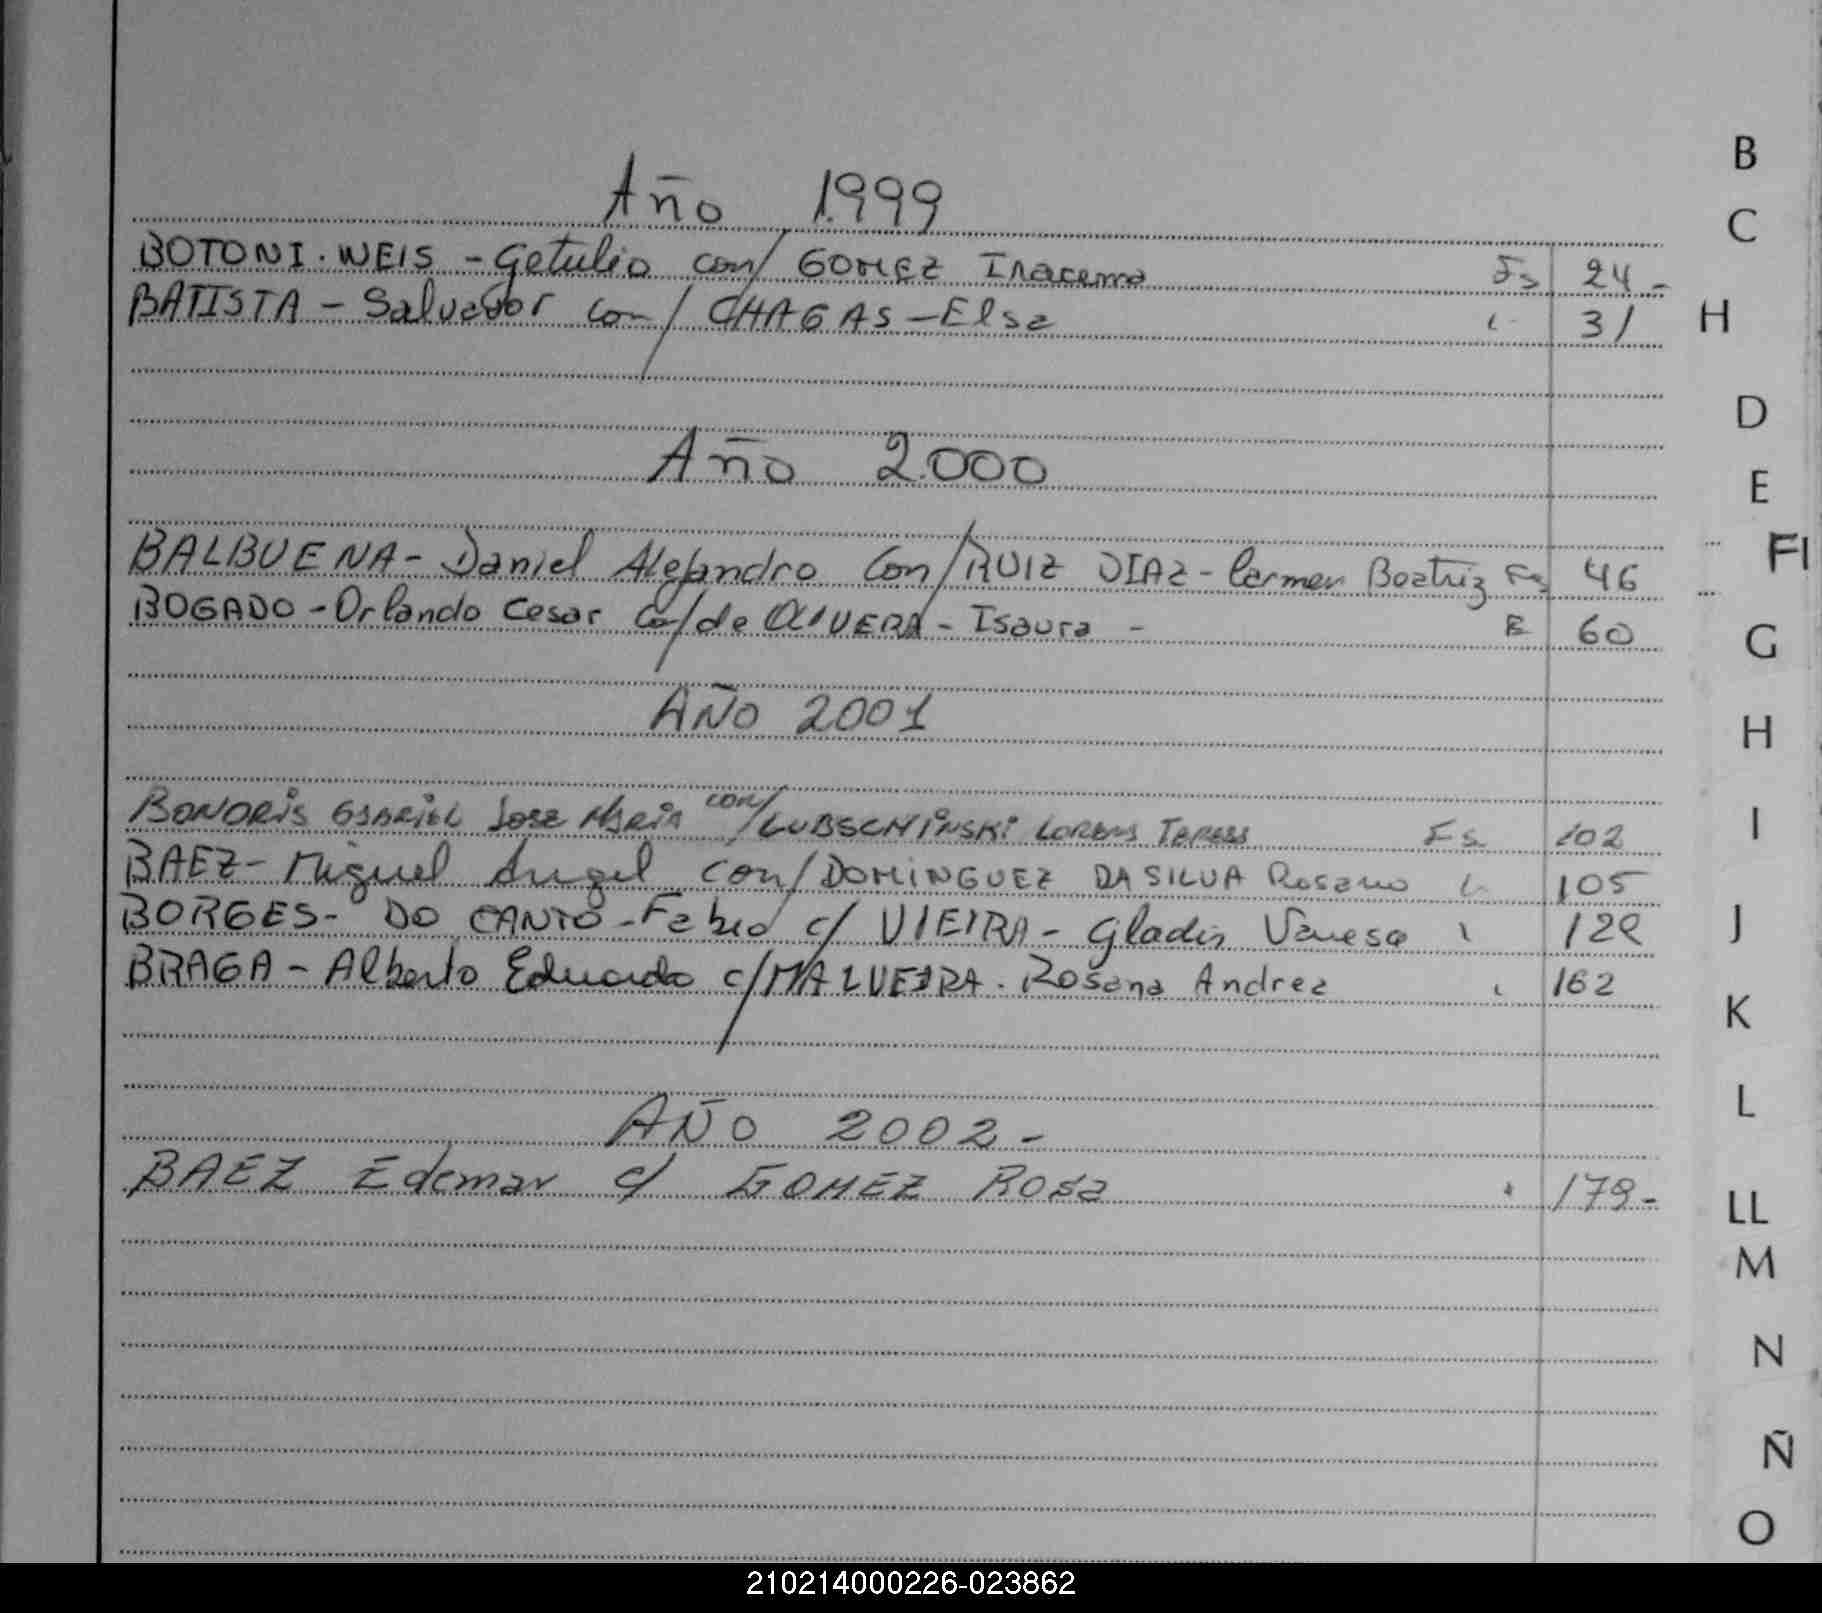 Año 1.999
BOTONI.WEIS - Getulio con/ GOMEZ Iracema Fs 24-
BATISTA - Salvador con/ CHAGAS - Elsa " 31
Año 2.000
BALBUENA - Daniel Alejandro Con/ RUIZ DIAZ - Carmen Beatriz Fs 46
BOGADO - Orlando Cesar Co/ de OLIVERA - Isaura - 60
AÑO 2001
BONORIS GABRIEL JOSE MARIA con/ LUBSCHINSKI LORENA TERESA Fs. 102
BAEZ - Miguel Angel con/ DOMINGUEZ DA SILVA 105
BORGES - DO CANTO - Fabio c/ VIEIRA - Gladis Vanesa
BRAGA - Alberto Eduardo c/ MALVEIRA. Rosana Andrea 162
AÑO 2002-
BAEZ Edemar c/ GOMEZ ROSA 179-
B
C
H
D
E
FI
G
H
I
J
K
L
LL
M
N
Ñ
O
210214000226-023862